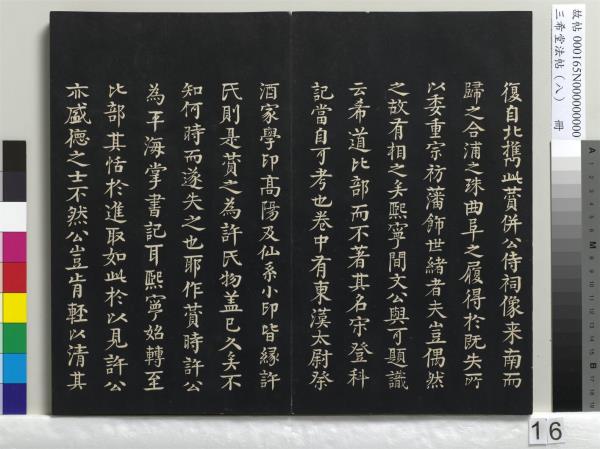 復自北攜此贊併公侍祠像来南而
歸之合浦之珠曲阜之履得於既失所
以委重宗祊藩飾世緒者夫豈偶然
之故有相之矣熙寧間文公與可題識
云希道比部而不著其名宋登科
記當自可考也卷中有東漢太尉祭
酒家學印高陽及仙系小印皆緣許
氏則是贊之為許氏物盖已久矣不
知何時而遂失之也耶作贊時許公
為平海掌書記耳熙寧始轉至
比部其恬於進取如此於以見許公
亦盛德之士不然公豈肯輕以清其
故帖 000165N000000000
三希堂法帖(八) 冊
16